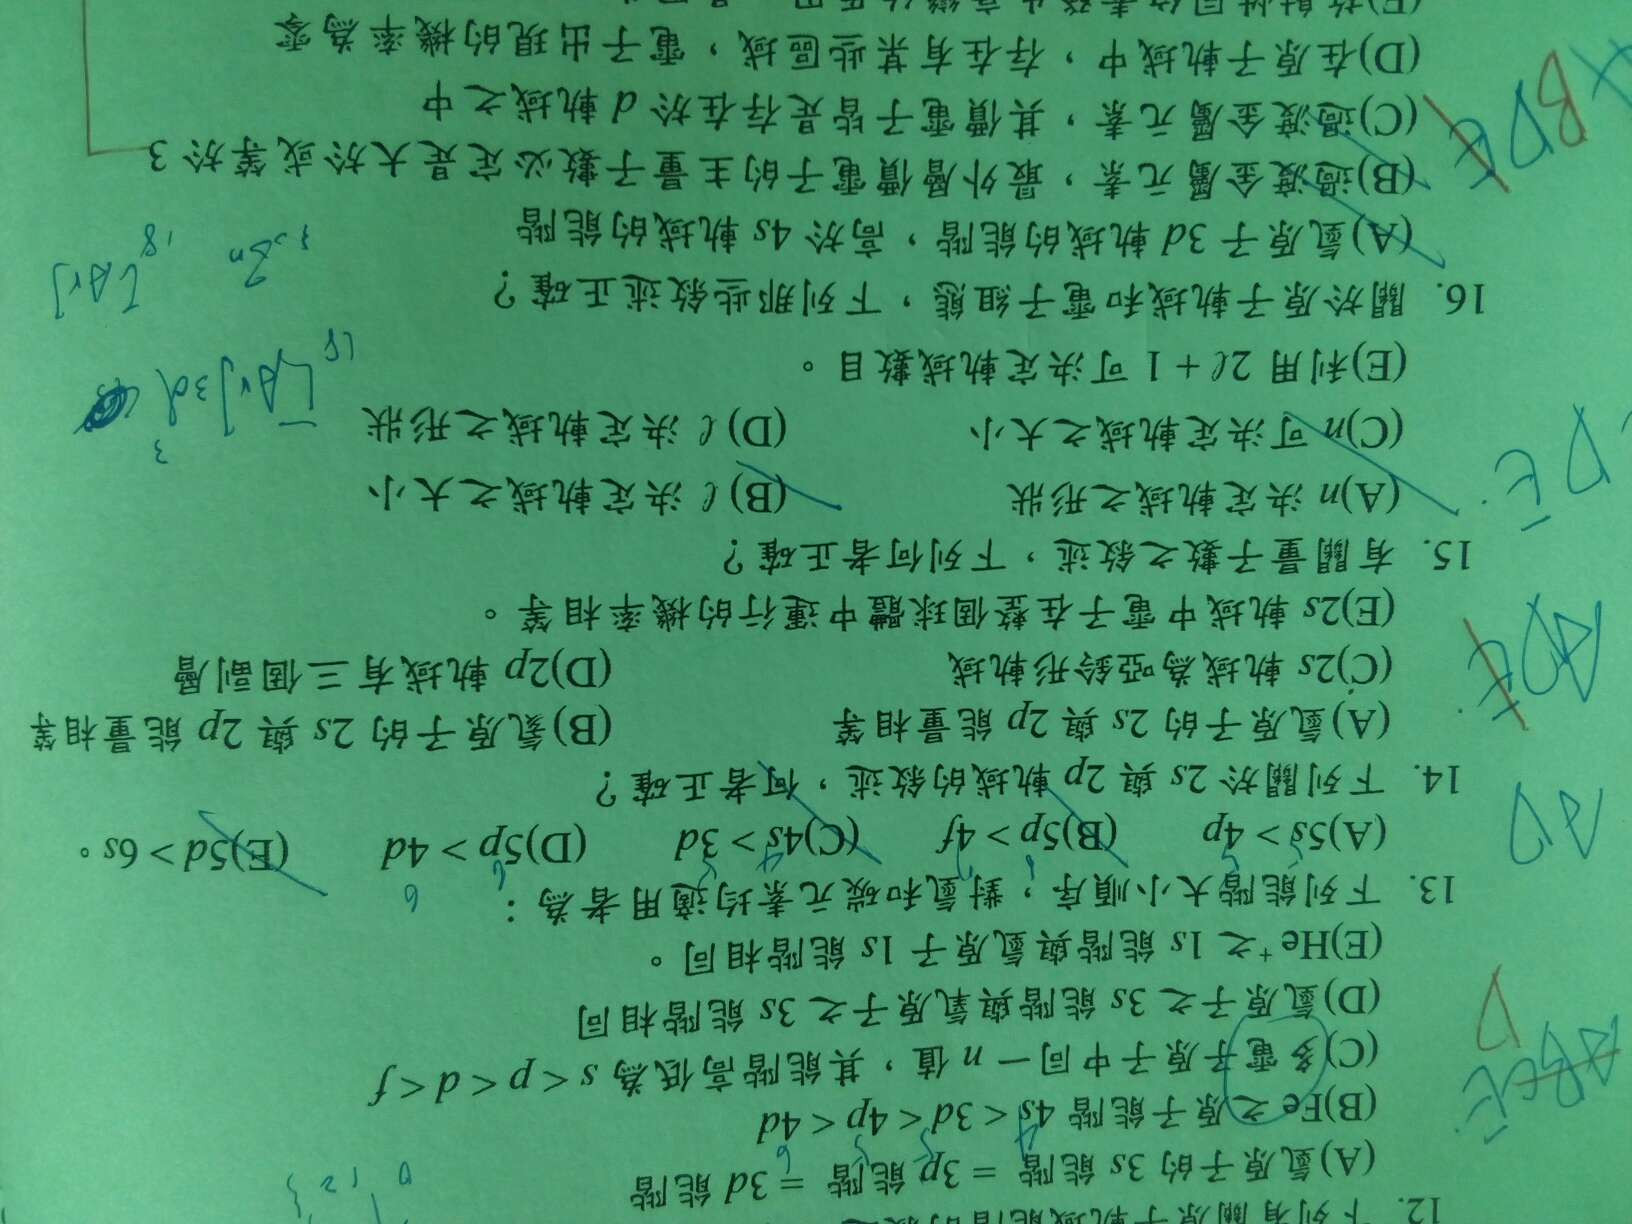 12. 下列有關原子軌域能階的
(A)氫原子的 3s 能階 = 3p 能階 = 3d 能階
(B)Fe 之原子能階 4s < 3d < 4p < 4d
(C)多電子原子中同一 n 值，其能階高低為 s < p < d < f
(D)氫原子之 3s 能階與氧原子之 3s 能階相同
(E)He⁺之 1s 能階與氫原子 1s 能階相同。
13. 下列能階大小順序，對氫和碳元素均適用者為：
(A)5s > 4p (B)5p > 4f (C)4s > 3d (D)5p > 4d (E)5d > 6s。
14. 下列關於 2s 與 2p 軌域的敘述，何者正確？
(A)氫原子的 2s 與 2p 能量相等 (B)氦原子的 2s 與 2p 能量相等
(C)2s 軌域為啞鈴形軌域 (D)2p 軌域有三個副層
(E)2s 軌域中電子在整個球體中運行的機率相等。
15. 有關量子數之敘述，下列何者正確？
(A)n 決定軌域之形狀 (B)ℓ 決定軌域之大小
(C)n 可決定軌域之大小 (D)ℓ 決定軌域之形狀
(E)利用 2ℓ + 1 可決定軌域數目。
16. 關於原子軌域和電子組態，下列那些敘述正確？
(A)氫原子 3d 軌域的能階，高於 4s 軌域的能階
(B)過渡金屬元素，最外層價電子的主量子數必定是大於或等於 3
(C)過渡金屬元素，其價電子皆是存在於 d 軌域之中
(D)在原子軌域中，存在有某些區域，電子出現的機率為零
ABCE
D
AD
ADE
DE
BDE
B
[Ar]3d
18
3
30Zn
[Ar]
18